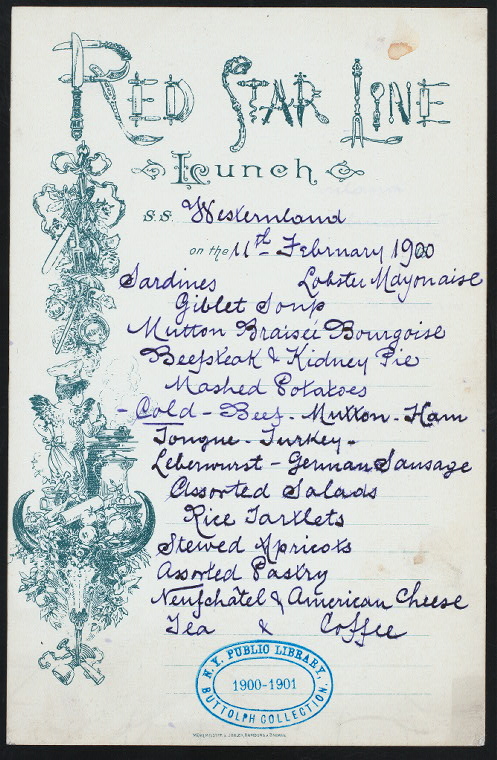 RED STAR LINE
Lunch
S.S. Westernland
on the 11th February 1900
Sardines Lobster Mayonaise
Giblet Soup
Mutton Braiseé Bourgoise
Beefsteak & Kidney Pie
Mashed Potatoes
- Cold - Beef - Mutton - Ham
Tongue - Turkey -
Leberwurst - German Sausage
Assorted Salads
Rice Tartlets
Stewed Apricots
Assorted Pastry
Neufchâtel & American Cheese
Tea & Coffee
N.Y. PUBLIC LIBRARY,
1900-1901
BUTTOLPH COLLECTION.